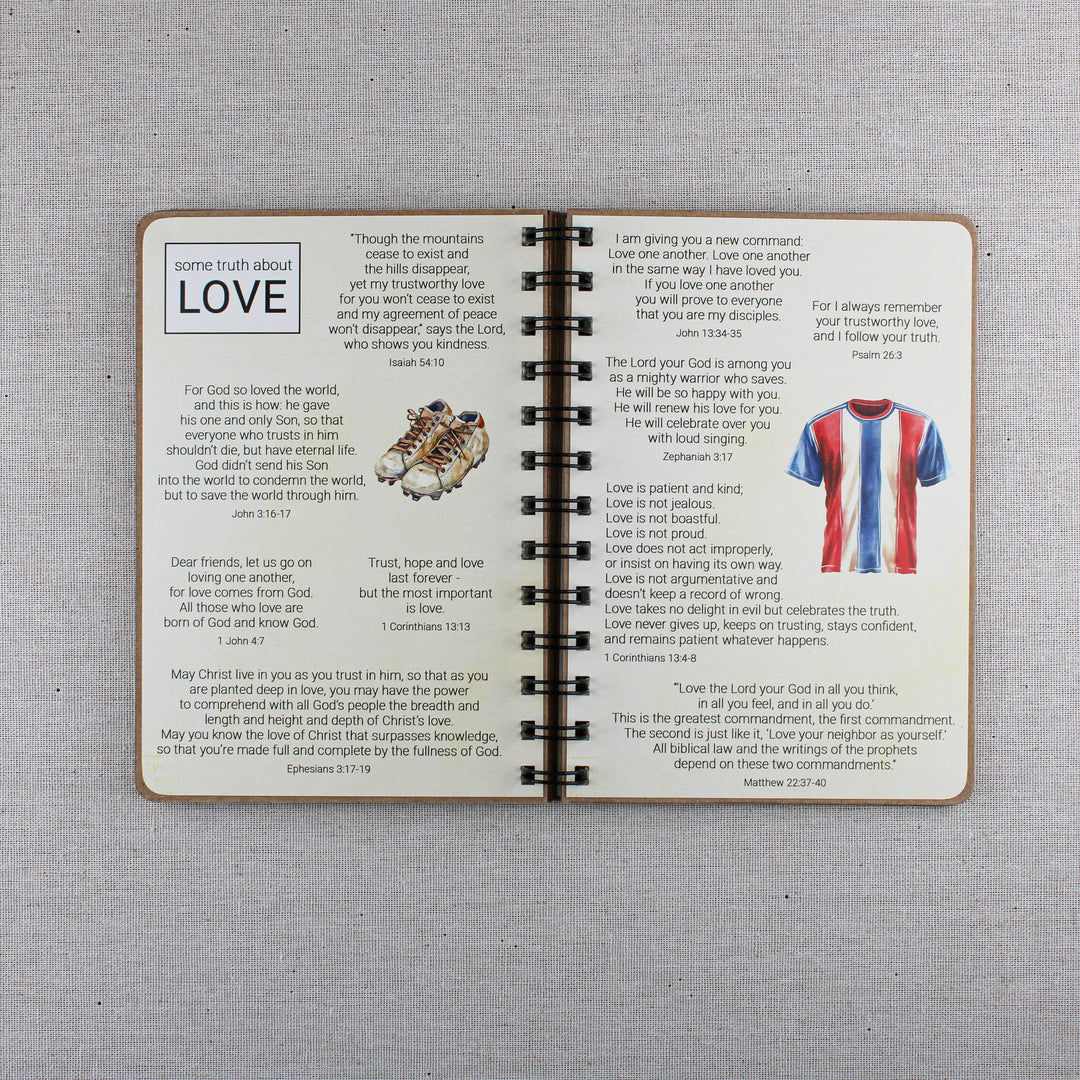 some truth about
LOVE
“Though the mountains
cease to exist and
the hills disappear,
yet my trustworthy love
for you won’t cease to exist
and my agreement of peace
won’t disappear,” says the Lord,
who shows you kindness.
Isaiah 54:10
For God so loved the world,
and this is how: he gave
his one and only Son, so that
everyone who trusts in him
shouldn’t die, but have eternal life.
God didn’t send his Son
into the world to condemn the world,
but to save the world through him.
John 3:16-17
Dear friends, let us go on
loving one another,
for love comes from God.
All those who love are
born of God and know God.
1 John 4:7
Trust, hope and love
last forever -
but the most important
is love.
1 Corinthians 13:13
May Christ live in you as you trust in him, so that as you
are planted deep in love, you may have the power
to comprehend with all God’s people the breadth and
length and height and depth of Christ’s love.
May you know the love of Christ that surpasses knowledge,
so that you’re made full and complete by the fullness of God.
Ephesians 3:17-19
I am giving you a new command:
Love one another. Love one another
in the same way I have loved you.
If you love one another
you will prove to everyone
that you are my disciples.
John 13:34-35
For I always remember
your trustworthy love,
and I follow your truth.
Psalm 26:3
The Lord your God is among you
as a mighty warrior who saves.
He will be so happy with you.
He will renew his love for you.
He will celebrate over you
with loud singing.
Zephaniah 3:17
Love is patient and kind;
Love is not jealous.
Love is not boastful.
Love is not proud.
Love does not act improperly,
or insist on having its own way.
Love is not argumentative and
doesn’t keep a record of wrong.
Love takes no delight in evil but celebrates the truth.
Love never gives up, keeps on trusting, stays confident,
and remains patient whatever happens.
1 Corinthians 13:4-8
“‘Love the Lord your God in all you think,
in all you feel, and in all you do.’
This is the greatest commandment, the first commandment.
The second is just like it, ‘Love your neighbor as yourself.’
All biblical law and the writings of the prophets
depend on these two commandments.”
Matthew 22:37-40